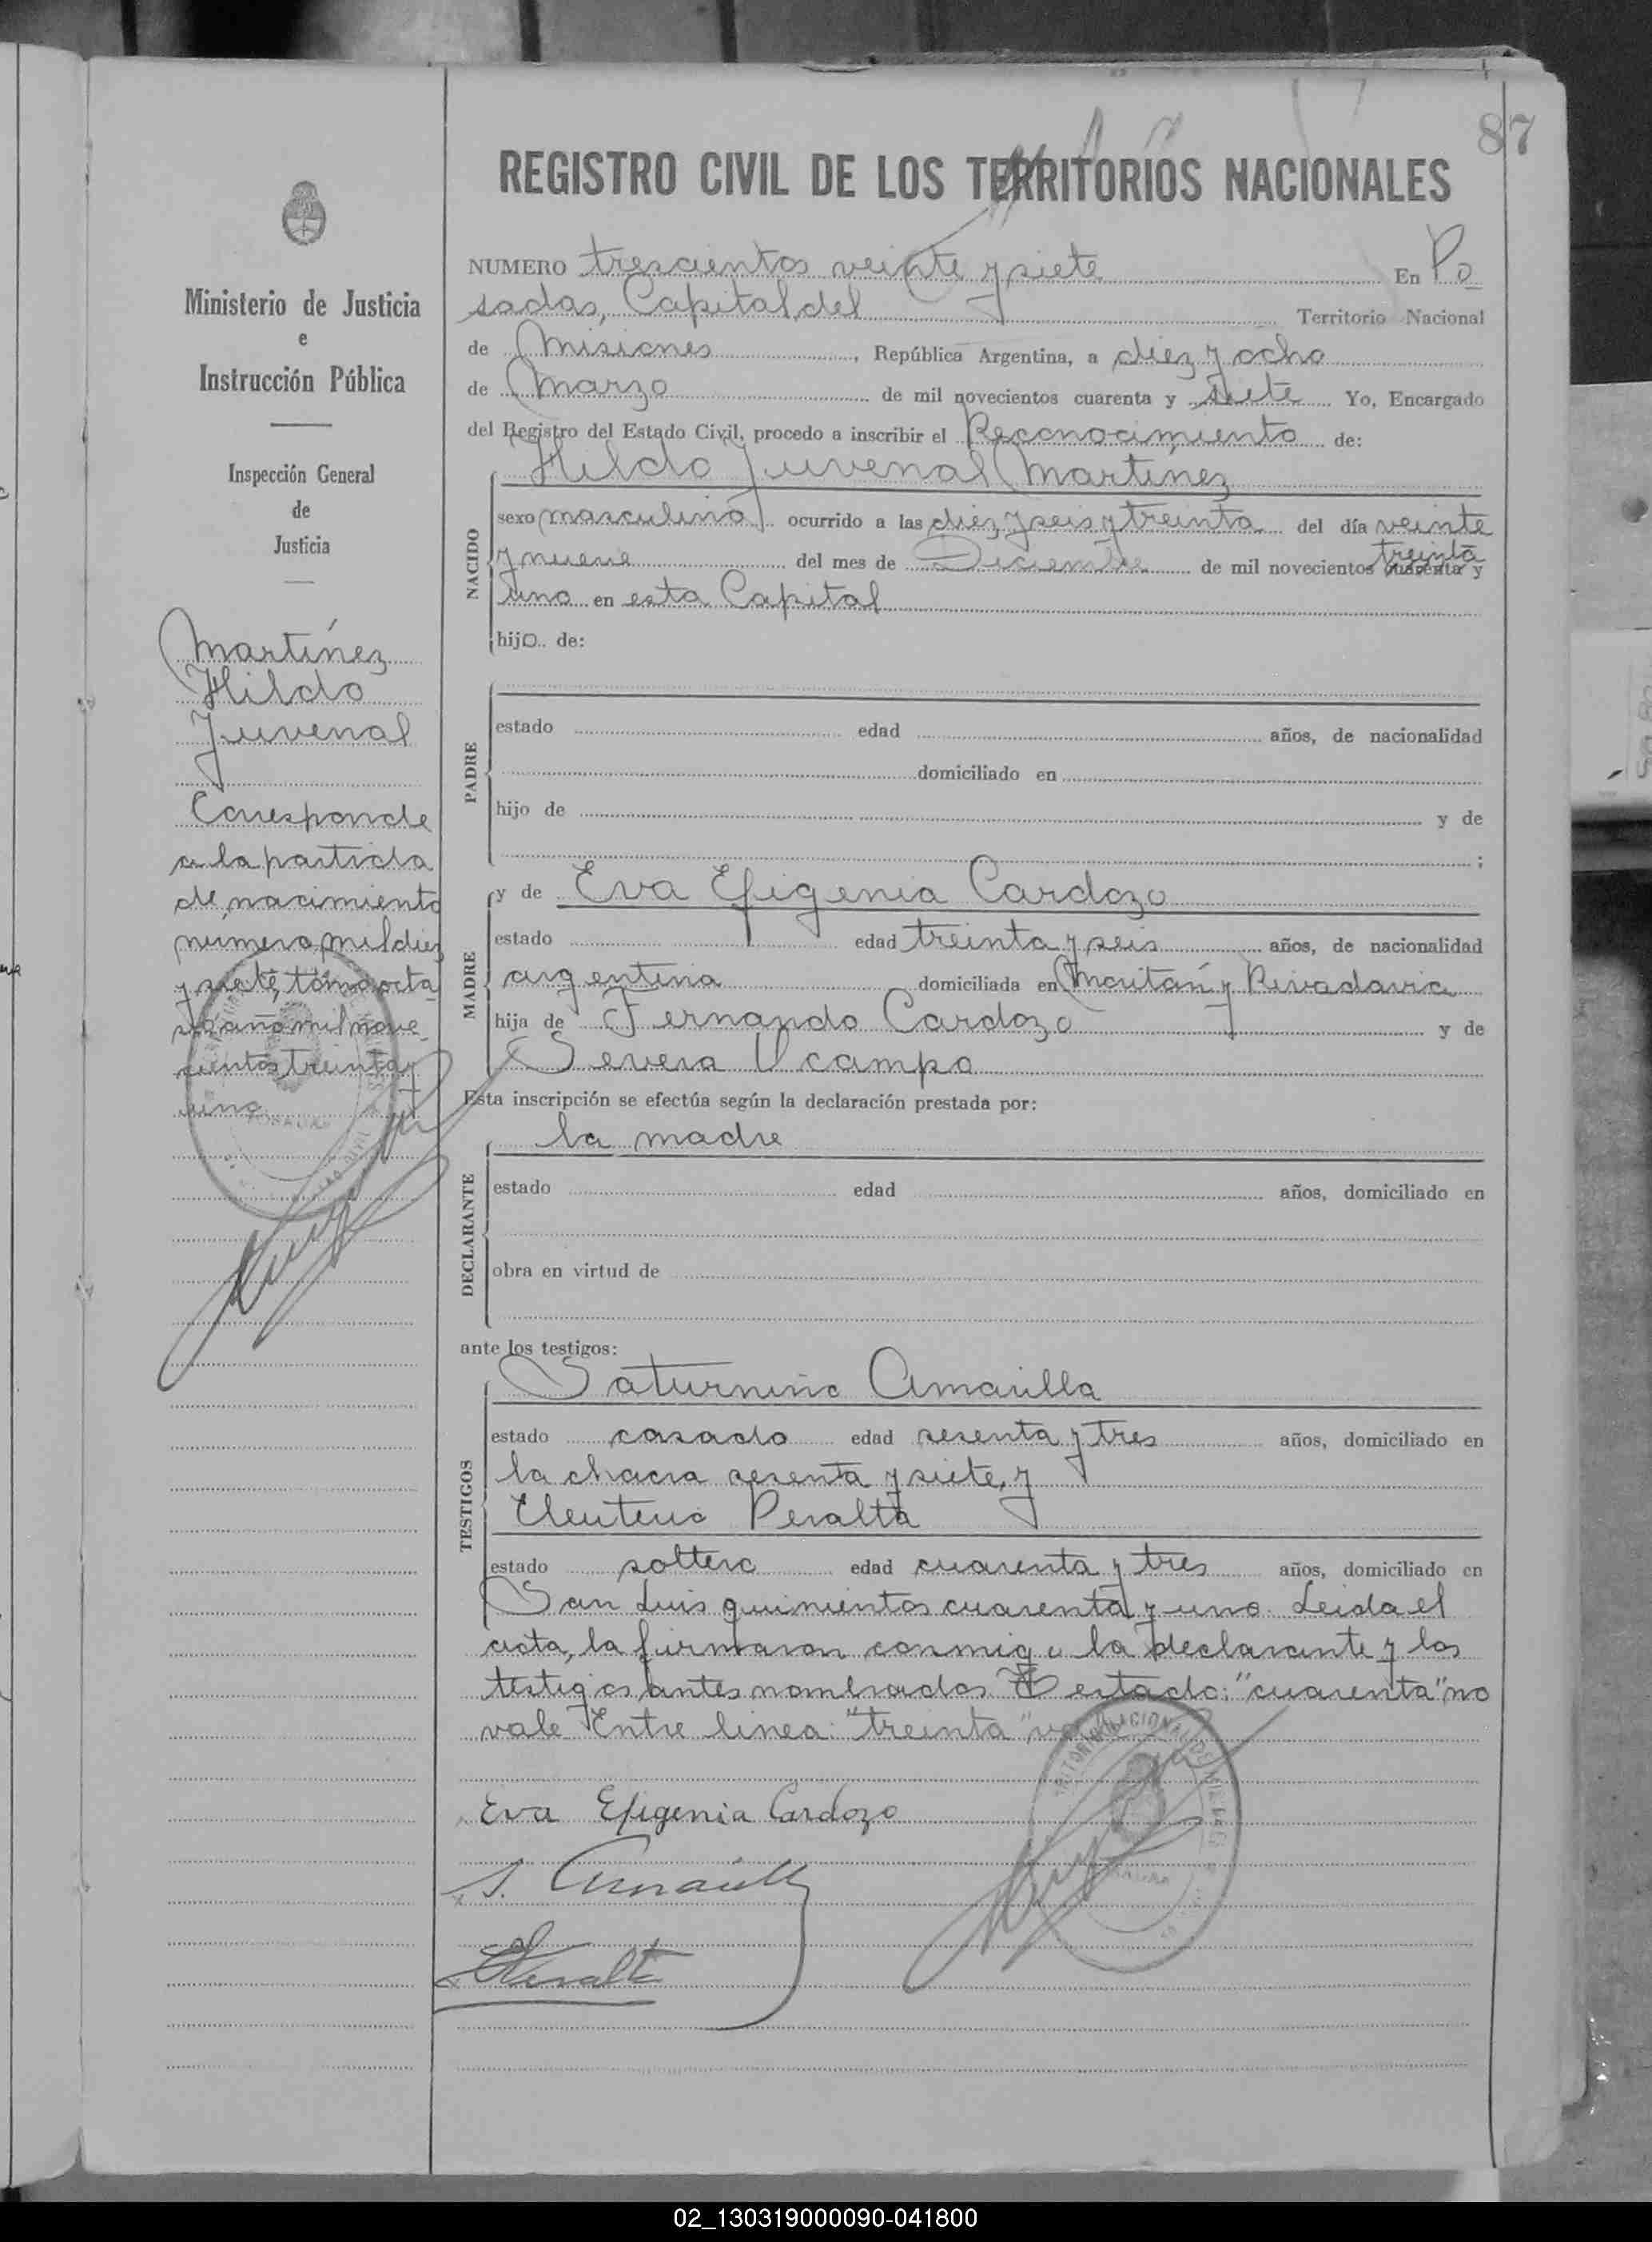 87
REGISTRO CIVIL DE LOS TERRITORIOS NACIONALES
Ministerio de Justicia
e
Instrucción Pública
Inspección General
de
Justicia
Martínez
Hildo
Juvenal
Corresponde
a la partida
de nacimiento
número mil diez
y siete, tomo octa
vo año mil nove
cientos treinta y
uno
NUMERO trescientos veinte y siete En Po
sadas, Capital del Territorio Nacional
de Misiones, República Argentina, a diez y ocho
de Marzo de mil novecientos cuarenta y siete Yo, Encargado
del Registro del Estado Civil, procedo a inscribir el Reconocimiento de:
Hildo Juvenal Martínez
NACIDO
sexo masculino ocurrido a las diez y seis y treinta del día veinte
treinta
y nueve del mes de Diciembre de mil novecientos cuarenta y
uno en esta Capital
hijo de:
PADRE
estado edad años, de nacionalidad
domiciliado en
hijo de y de
;
MADRE
y de Eva Efigenia Cardozo
estado edad treinta y seis años, de nacionalidad
argentina domiciliada en Moritán y Rivadavia
hija de Fernando Cardozo y de
Severa Ocampo
Esta inscripción se efectúa según la declaración prestada por:
DECLARANTE
la madre
estado edad años, domiciliado en
obra en virtud de
ante los testigos:
TESTIGOS
Saturnino Amarilla
estado casado edad sesenta y tres años, domiciliado en
la chacra sesenta y siete, y
Eleuterio Peralta
estado soltero edad cuarenta y tres años, domiciliado en
San Luis quinientos cuarenta y uno. Leida el
acta, la firmaron conmigo la declarante y los
testigos antes nombrados. Testado: "cuarenta" no
vale Entre linea: "treinta"
Eva Efigenia Cardozo
S. Amarilla
EPeralta
02_130319000090-041800